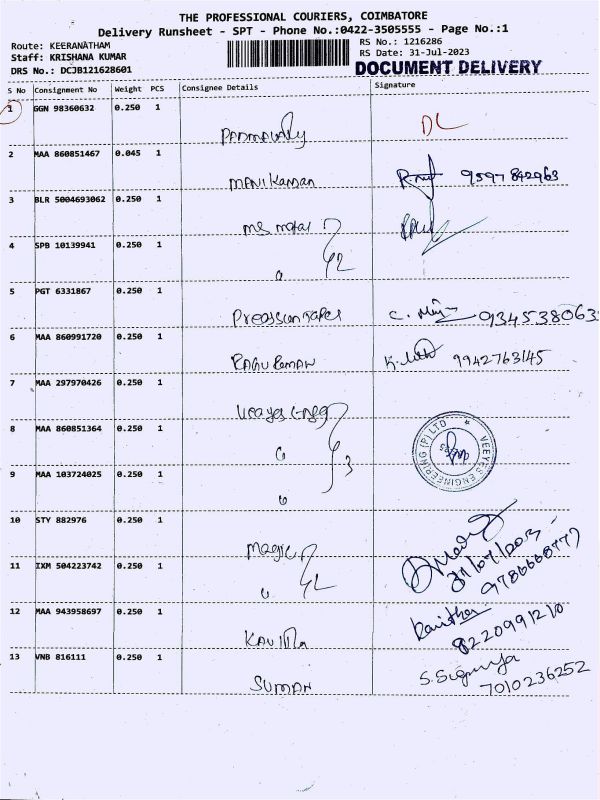 THE PROFESSIONAL COURIERS, COIMBATORE
Delivery Runsheet - SPT - Phone No.:0422-3505555 - Page No.:1
Route: KEERANATHAM
Staff: KRISHANA KUMAR
DRS No.: DCJB121628601
RS No.: 1216286
RS Date: 31-Jul-2023
DOCUMENT DELIVERY
S No Consignment No Weight PCS Consignee Details Signature
1 GGN 98360632 0.250 1
DL
2 MAA 860851467 0.045 1
MANIKANDAN 9597842963
3 BLR 5004693062 0.250 1
MS Metal
4 SPB 10139941 0.250 1
2
5 PGT 6331867 0.250 1
C. 934538063
6 MAA 860991720 0.250 1
RAGU RAMAN 9942763145
7 MAA 297970426 0.250 1
Veeyes Engg
8 MAA 860851364 0.250 1
3
VEEYES ENGINEERING (P) LTD
9 MAA 103724025 0.250 1
10 STY 882976 0.250 1
Magic
31/07/2023
9786668777
11 IXM 504223742 0.250 1
2
12 MAA 943958697 0.250 1
KAVITHA Kavitha
8220991210
13 VNB 816111 0.250 1
SUMAN S.
7010236252